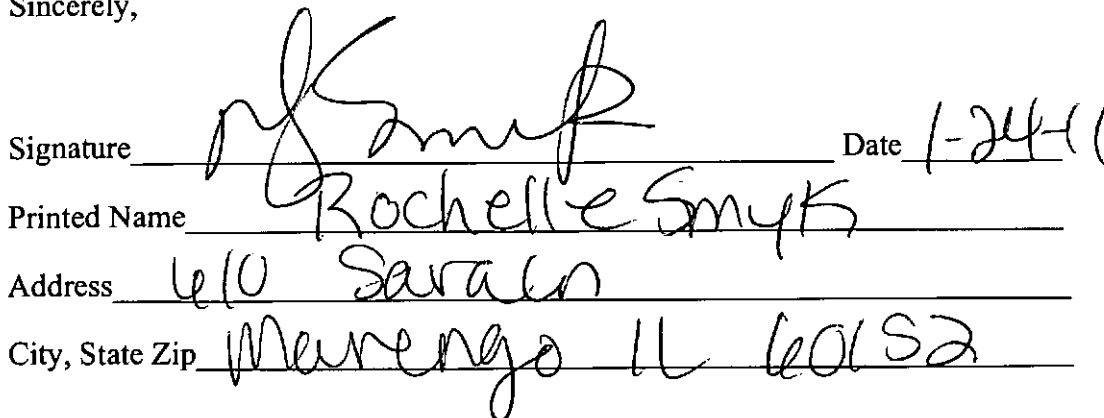 Sincerely,
Signature Smyk Date 1-24-11
Printed Name Rochelle Smyk
Address 610 Sara Ln
City, State Zip Marengo IL 60152